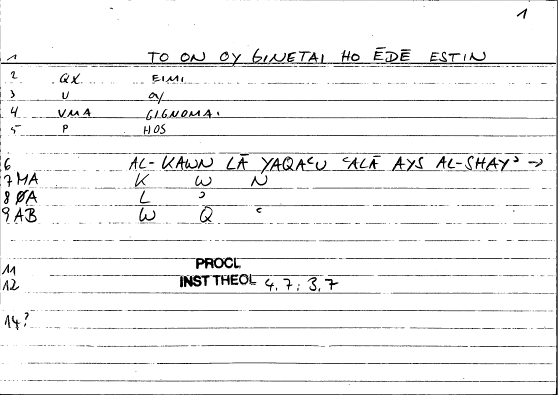 1
1 TO ON OY GINETAI HO ĒDĒ ESTIN
2 QX EIMI
3 U OY
4 VMA GIGNOMAI
5 P HOS
6 AL-KAWN LĀ YAQAʿU ʿALĀ AYS AL-SHAYʾ →
7 MA K W N
8 ØA L ʾ
9 AB W Q ʿ
11 PROCL
12 INST THEOL 4, 7 ; 3, 7
14?